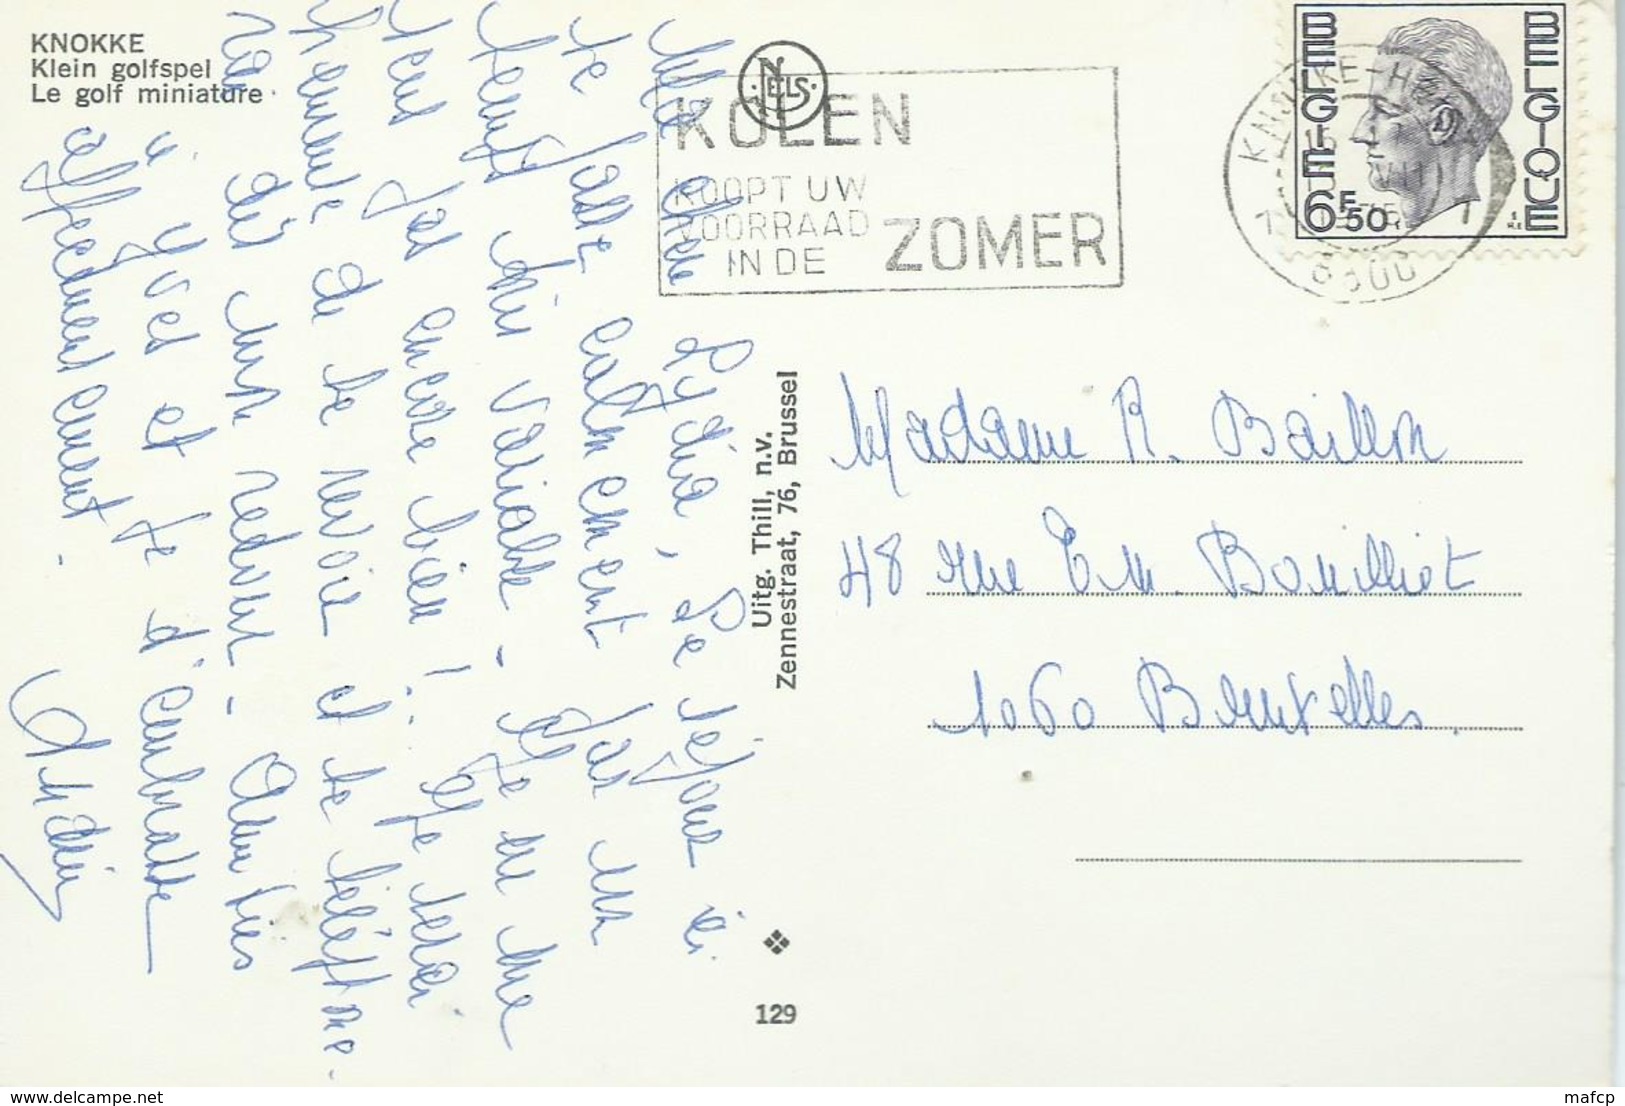 KNOKKE
Klein golfspel
Le golf miniature
NELS
KOLEN
KOOPT UW
VOORRAAD
IN DE ZOMER
KNOKKE-H
8300
BELGIE
BELGIQUE
6F50
Ma chère Lydia, Le séjour ici
se passe calmement par un
temps très variable - Je ne me
sens pas encore bien ! Je serai
heureuse de te revoir et te télépho-
nerai dès mon retour - Amitiés
à Yves et je t'embrasse
affectueusement.
Uitg. Thill, n.v.
Zennestraat, 76, Brussel
129
Madame R. Baillon
48 rue Em. Bouilliot
1060 Bruxelles.
mafcp